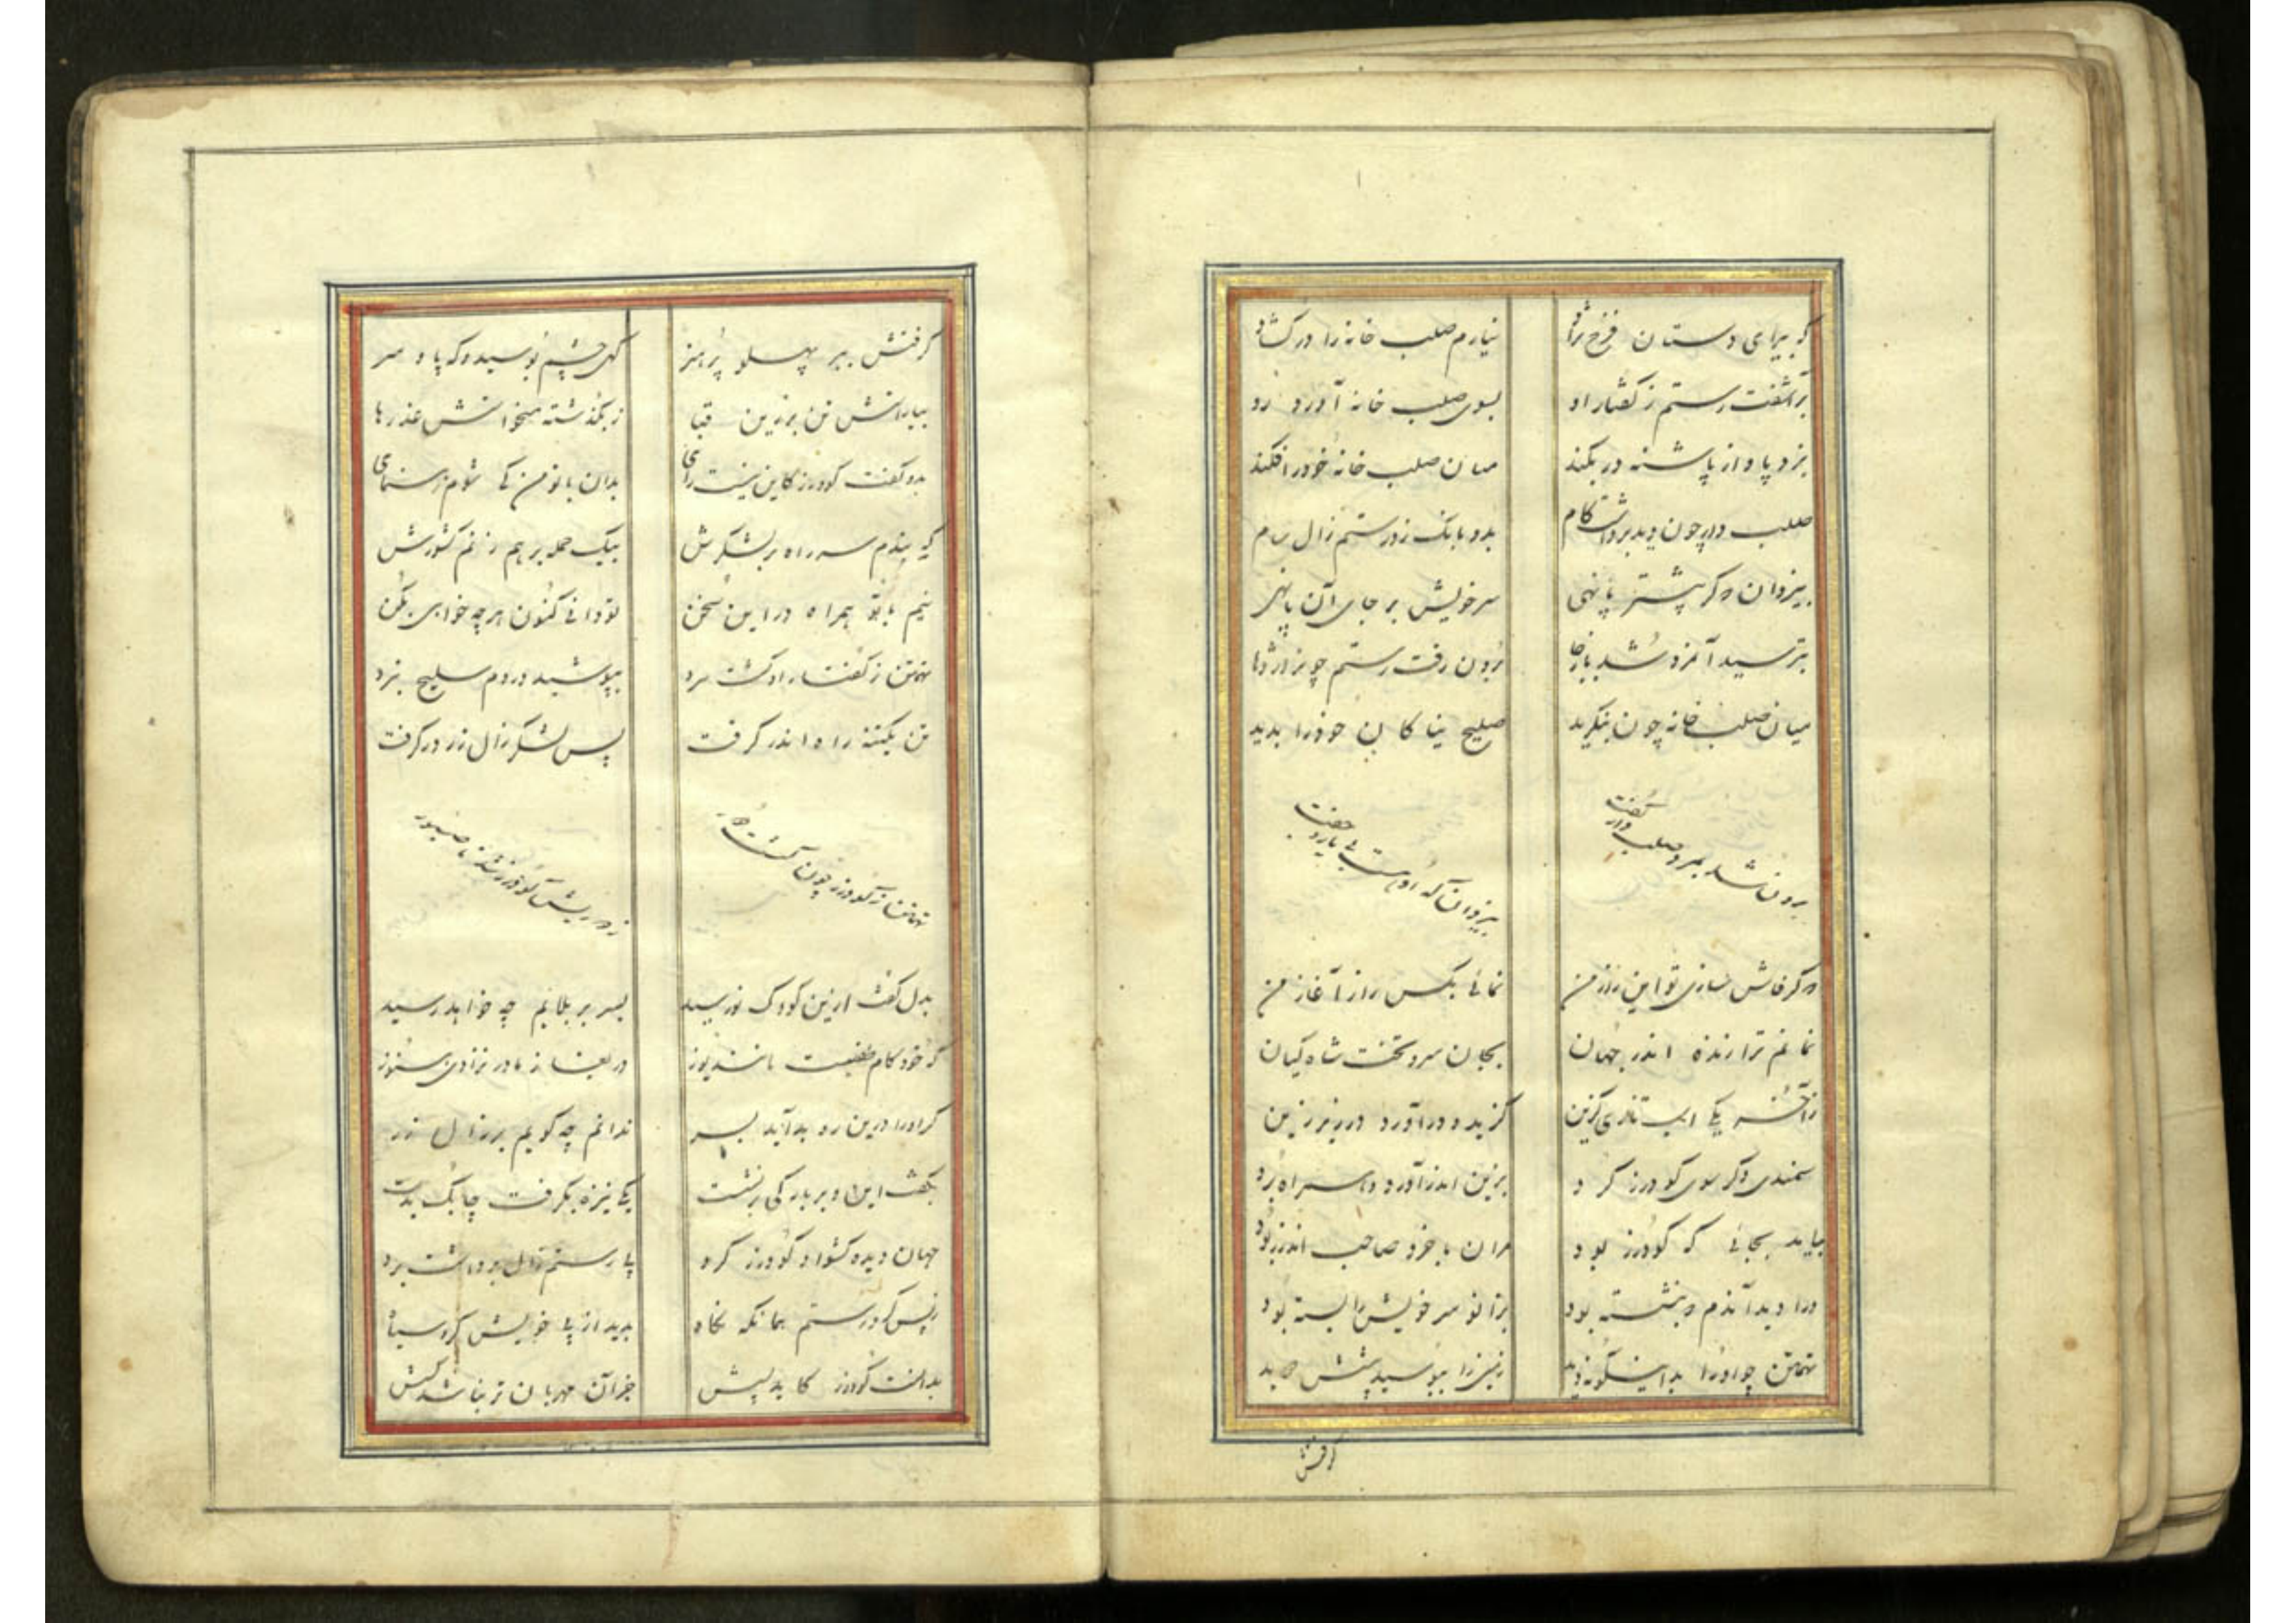 که بیرای دستان فرخ نژاد نیارم صلب خانه را در کشاد
برآشفت رستم ز گفتار او بسوی صلب خانه آورد رو
بزد پا و از پاشنه در بکند میان صلب خانه خود را فکند
صلب دار چون دید برداشت کام بدو بانک زد رستم زال سام
بیزدان دکر پیشتر پا نهی سر خویش بر جای آن پا نهی
بترسید آنمرد شد باز جا برون رفت رستم چو نر اژدها
میان صلب خانه چون بنکرید صلیح نیاکان خود را بدید
برون شد بمرد صلب دار گفت بیزدان که اوست بی یار و جفت
دکر فاش سازی تو این راز من نمائی بکس راز آغاز من
نمانم ترا زنده اندر جهان بجان سر و تخت شاه کیان
ز آخر یکی اسب تازی گزین گزیده در آورد در زیر زین
سمندی دکر سوی کودرز کرد بزین اندر آورد و سر راه برد
بیامد بجائی که کودرز بود مران با خرد صاحب اندرز بود
ورا دید آندم که بنشسته بود بزانو سر خویش را بسته بود
تهمتن چو او را بداینکونه دید زمین را ببوسید پیشش دوید
کرفتش
کرفتش ببر پهلو پرهنر کهی چشم بوسید و که پا و سر
بیاراستش تن بزرین قبا ز بکذشته میخواستش عذرها
بدو گفت کودرز کاین نیست رای بدان با تو من کی شوم رهنمای
که بندم سر راه بر لشکرش بیک حمله بر هم زنم کشورش
نیم با تو همراه در این سخن تو دانی کنون هر چه خواهی بکن
تهمتن ز گفتار او کشت سرد بپوشید در دم سلیح نبرد
تن یکتنه راه اندر کرفت پس لشکر زال زر در کرفت
تهمتن ز کودرز چون کشت دور ز دوریش کودرز شد ناصبور
بدل گفت ازین کودک نورسید بسر بر بلایم چه خواهد رسید
که خود کام طفلیست باشد یوز دریغا ز مادر نزادی هنوز
کر او را درین ره بد آید بسر ندانم چه کویم بر زال زر
بگفت این و بر بارکی بر نشست یکی نیزه بکرفت چابک بدست
جهان دیده کشواد کودرز کرد پا رستم زال برداشت برد
ز پس کرد رستم همانکه نکاه بدید از پی خویش کرد سیاه
بدانست کودرز کآید پیش جز آن مهربان تر نباشد کسش